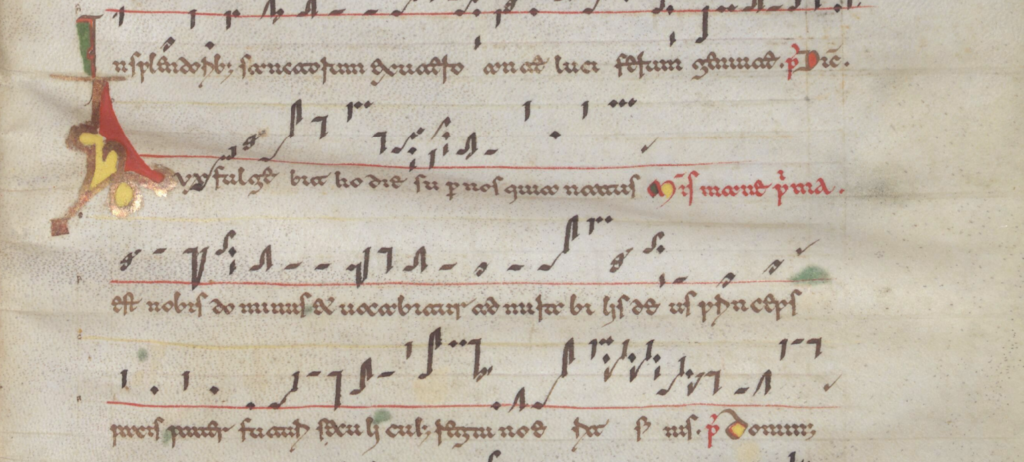 In splendorib; sanctorum ex utero ante luci ferum genui te. pͬ Dix̄.
Lux fulge bit ho die su per nos quia natus Mis maane pͬ ma.
est nobis do minus & uocabitur ad mira bi lis de us princeps
pacis pater futuri seculi cui; regni non erit fi nis. pͬ Dominus